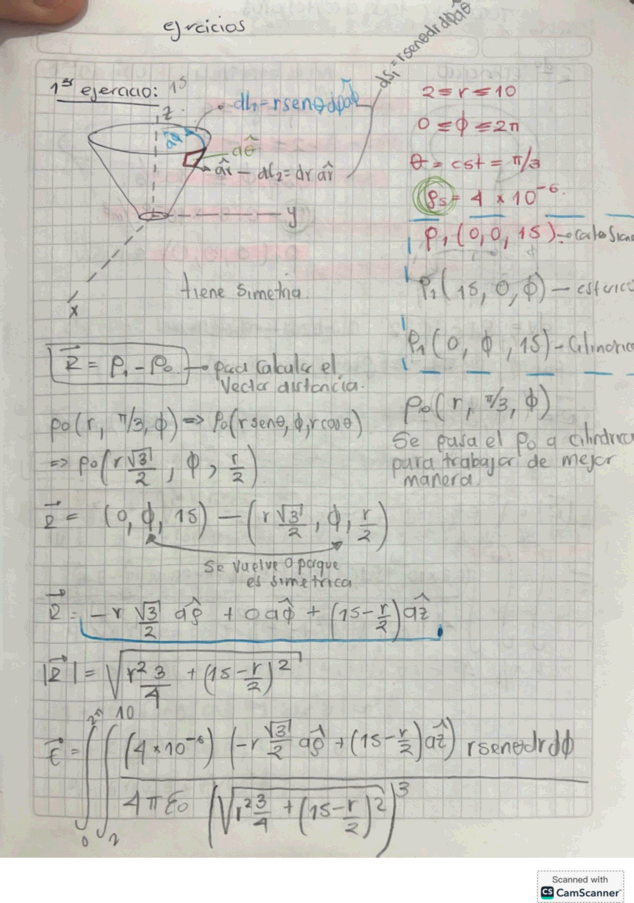 ejercicios
1er ejercicio: 15
z
dl1=rsenθdφaφ̂
ds1=rsenθdrdφaθ̂
aφ̂
aθ̂
ar̂ — dl2=dr ar̂
y
x
tiene simetria.
2≤r≤10
0≤φ≤2π
θ=cst=π/3
ρs=4×10⁻⁶.
P1(0,0,15)→cartesiana
P1(15,0,φ)—esferica
P1(0,φ,15)—Cilindrica
P0(r,π/3,φ)
Se pasa el P0 a cilindrica
para trabajar de mejor
manera.
R⃗=P1-P0→para calcular el
Vector distancia.
P0(r,π/3,φ)⇒P0(rsenθ,φ,rcosθ)
⇒P0(r√3/2,φ,r/2)
R⃗=(0,φ,15)-(r√3/2,φ,r/2)
Se vuelve 0 porque
es simetrica
R⃗=-r√3/2 aρ̂+0aφ̂+(15-r/2)aẑ
|R⃗|=√(r²3/4+(15-r/2)²)
E⃗=∫₀^2π∫₂^10 (4×10⁻⁶)(-r√3/2 aρ̂+(15-r/2)aẑ) rsenθdrdφ
4πε0(√(r²3/4+(15-r/2)²))³
Scanned with
CS CamScanner